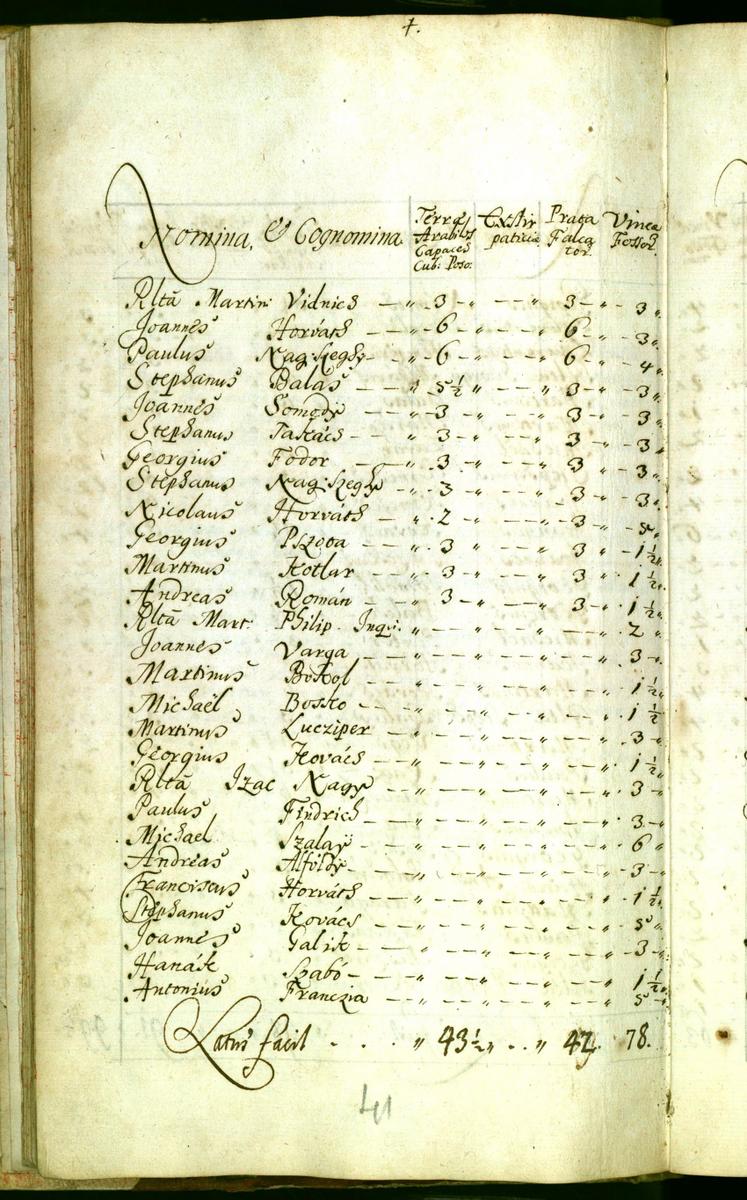 4.
Nomina, & Cognomina. Terræ Arabiles Capaces Cub: Poso: Extirpaticiæ Prata Falcator. Vinea Fossor.
Rltã Martin: Vidnics — „ 3 — „ — — „ 3 — „ — 3 „
Joannes Horváth — „ 6 — „ — — „ 6 — „ — 3 „
Paulus Nag Szeghy — „ 6 — „ — — „ 6 „ — 4 „
Stephanus Balas — — „ 5 ½ „ — — „ 3 — „ — 3 „
Joannes Somody — „ 3 — „ — — „ 3 — „ — 3 „
Stephanus Takács — — „ 3 — „ — — „ 3 — „ — 3 „
Georgius Fodor — — „ 3 — „ — — „ 3 — „ — 3 „
Stephanus Nag Szeghy — „ 3 — „ — — „ 3 — „ — 3 „
Nicolaus Horváth — „ 2 — „ — — „ 3 — „ — 5 „
Georgius Pszota — — „ 3 — „ — — „ 3 — „ — 1 ½ „
Martinus Kotlar — — „ 3 — „ — — „ 3 „ 1 ½ „
Andreas Román — — „ 3 — „ — — „ 3 — „ 1 ½ „
Rltã Mart: Philip Inqui: — „ — — „ — — „ — — „ 2 „
Joannes Varga — — „ — — „ — — „ — — „ 3 —
Martinus Bokol — — „ — — „ — — „ — — „ 1 ½ „
Michaël Bosko — — „ — — „ — — „ — — „ 1 ½
Martinus Lucziper — — „ — — „ — — „ — — „ 3 —
Georgius Kovács — — „ — — „ — — „ — — „ 1 ½ „
Rltã Izac Nagy — — „ — — „ — — „ — — „ 3 —
Paulus Findrich — — „ — — „ — — „ — — „ 3 —
Michael Szalaÿ — — „ — — „ — — „ — — „ 6 „
Andreas Alföldy — — „ — — „ — — „ — — „ 3 —
Franciscus Horváth — — „ — — „ — — „ — — „ 1 ½ „
Stephanus Kovács — — „ — — „ — — „ — — „ 5 „
Joannes Galik — — „ — — „ — — „ — — „ 3 —
Hanák Szabó — — „ — — „ — — „ — — „ 1 ½ „
Antonius Franczia — — „ — — „ — — „ — — „ 5 —
Latus facit . . . „ 43 ½ „ . . „ 42. 78.
41